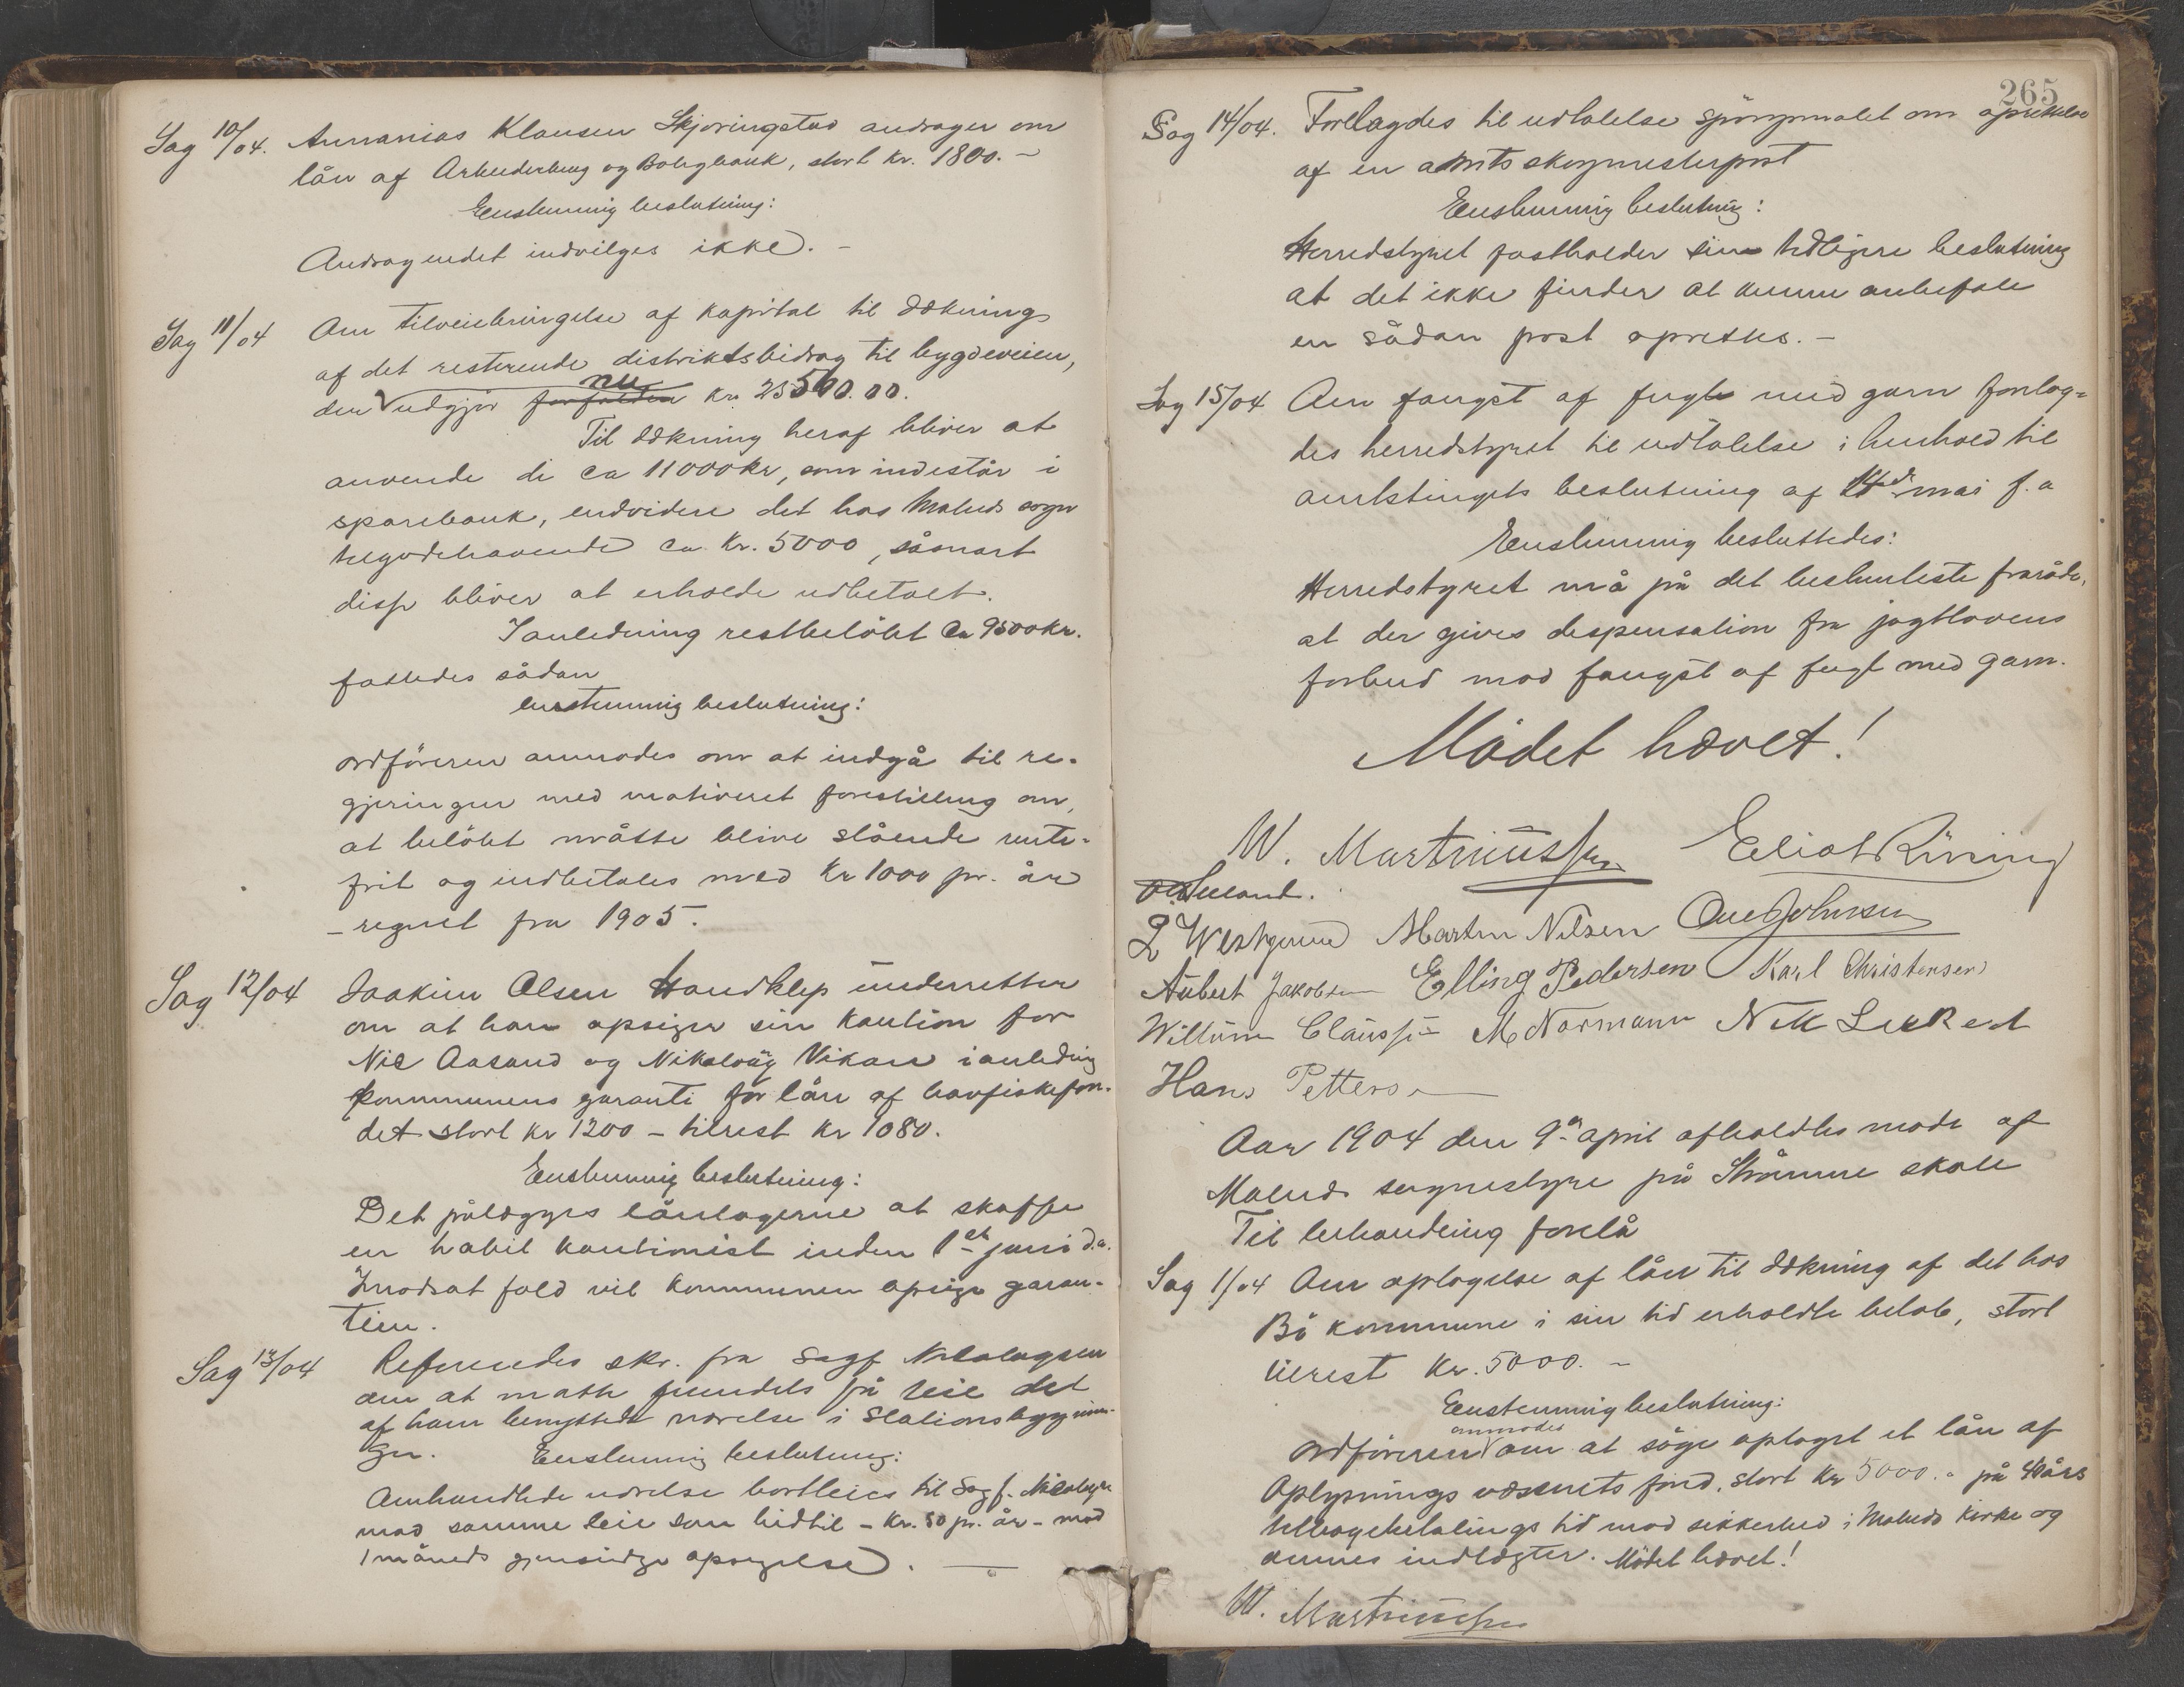 Sag 10/04. Annanias Klausen Skjoringstad andrager om
lån af Arbeiderbrug og Boligbank, stort kr. 1800.-
Eenstemmig beslutning:
Andragendet indvilges ikke. -
Sag 11/04 Om tilveiebringelse af kapital til dækning
af det resterende distriktsbidrag til bygdeveien,
den nu udgjør forfalden kr 25500.00.
Til dækning heraf bliver at
anvende de ca 11000 kr, som indestår i
sparebank, endvidere det hos Malnes sogn
tilgodehavende ca. kr. 5000, såsnart
disse bliver at erholde udbetalt.
I anledning restbeløbet ca 9500 kr.
fattedes sådan
enstemmig beslutning:
Ordføreren anmodes om at indgå til re-
gjeringen med motiveret forestilling om,
at beløbet måtte blive stående rente-
frit og indbetales med kr 1000 pr. år
- regnet fra 1905.
Sag 12/04 Joakim Olsen Hondklep underretter
om at han opsiger sin kaution for
Nic Aasand og Nikolai Vikan i anledning
kommunens garanti for lån af havfiskefon-
det stort kr 1200 - tilrest kr 1080.
Eenstemmig beslutning:
Det pålægges låntagerne at skaffe
en habil kautionist inden 1et juni d.a.
I modsat fald vil kommunen opsige garan-
tien.
Sag 13/04 Refereredes skr. fra Sagf. Nicolaysen
om at måtte fremdels få leie det
af ham benyttede værelse i Stationsbygnin-
gen. Eenstemmig beslutning:
Omhandlede værelse bortleies til Sagf. Nicolaysen
mod samme leie som hidtil - kr. 50 pr. år - mod
1 måneds gjensidige opsigelse. -
265
Sag 14/04. Forelagdes til udtalelse spörgsmålet om oprettelse
af en amtsskogmesterpost
Eenstemmig beslutning:
Herredstyret fastholder sin tidligere beslutning
at det ikke finder at kunne anbefale
en sådan post oprettes. -
Sag 15/04 Om fangst af fugle med garn forelag-
des herredstyret til udtalelse i henhold til
amtstingets beslutning af 14de mai f.a
Eenstemmig besluttedes:
Herredstyret må på det bestemteste fraråde,
at der gives dispensation fra jagtlovens
forbud mod fangst af fugl med garn.
Mödet hævet!
W. Martinussen Eliot Röning
Ole Seeland.
Martin Nilsen Ole Johnsen
Aubert Jakobsen Elling Pedersen Karl Christensen
Willum Claussen M Normann
Hans Petters
Aar 1904 den 9de april afholdtes möde af
Malnes sognestyre på Strömme skole
Til behandling forelå
Sag 1/04 Om optagelse af lån til dækning af det hos
Bö kommune i sin tid erholdte belöb, stort
tilrest kr. 5000. -
Eenstemmig beslutning:
Ordföreren anmodes om at söge optaget et lån af
Oplysningsvæsenets fond, stort kr 5000.- på 40 års
tilbagebetalings tid mod sikkerhed i Malnes kirke og
dennes indtægter. Mödet hævet!
W. Martinussen